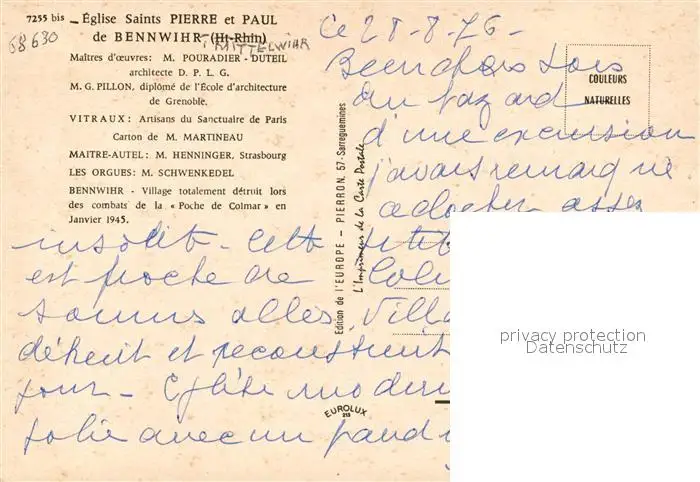 7255 bis — Église Saints PIERRE et PAUL
de BENNWIHR (Ht-Rhin)
68630
MITTELWIHR
Maîtres d'œuvres: M. POURADIER-DUTEIL
architecte D. P. L. G.
M. G. PILLON, diplômé de l'École d'architecture
de Grenoble.
VITRAUX: Artisans du Sanctuaire de Paris
Carton de M. MARTINEAU
MAITRE-AUTEL: M. HENNINGER, Strasbourg
LES ORGUES: M. SCHWENKEDEL
BENNWIHR - Village totalement détruit lors
des combats de la « Poche de Colmar » en
Janvier 1945.
Édition de l'EUROPE - PIERRON, 57-Sarreguemines
L'Imprimeur de la Carte Postale
COULEURS
NATURELLES
Ce 28-8-76-
Bien chers tous
Au hazard
d'une excursion
j'avais remarqué
ce clocher assez
insolite. Cette
est proche de
sommes allés. Villa
détruit et reconstruit
jour - Eglise modern
jolie avec un grand
EUROLUX
213
privacy protection
Datenschutz